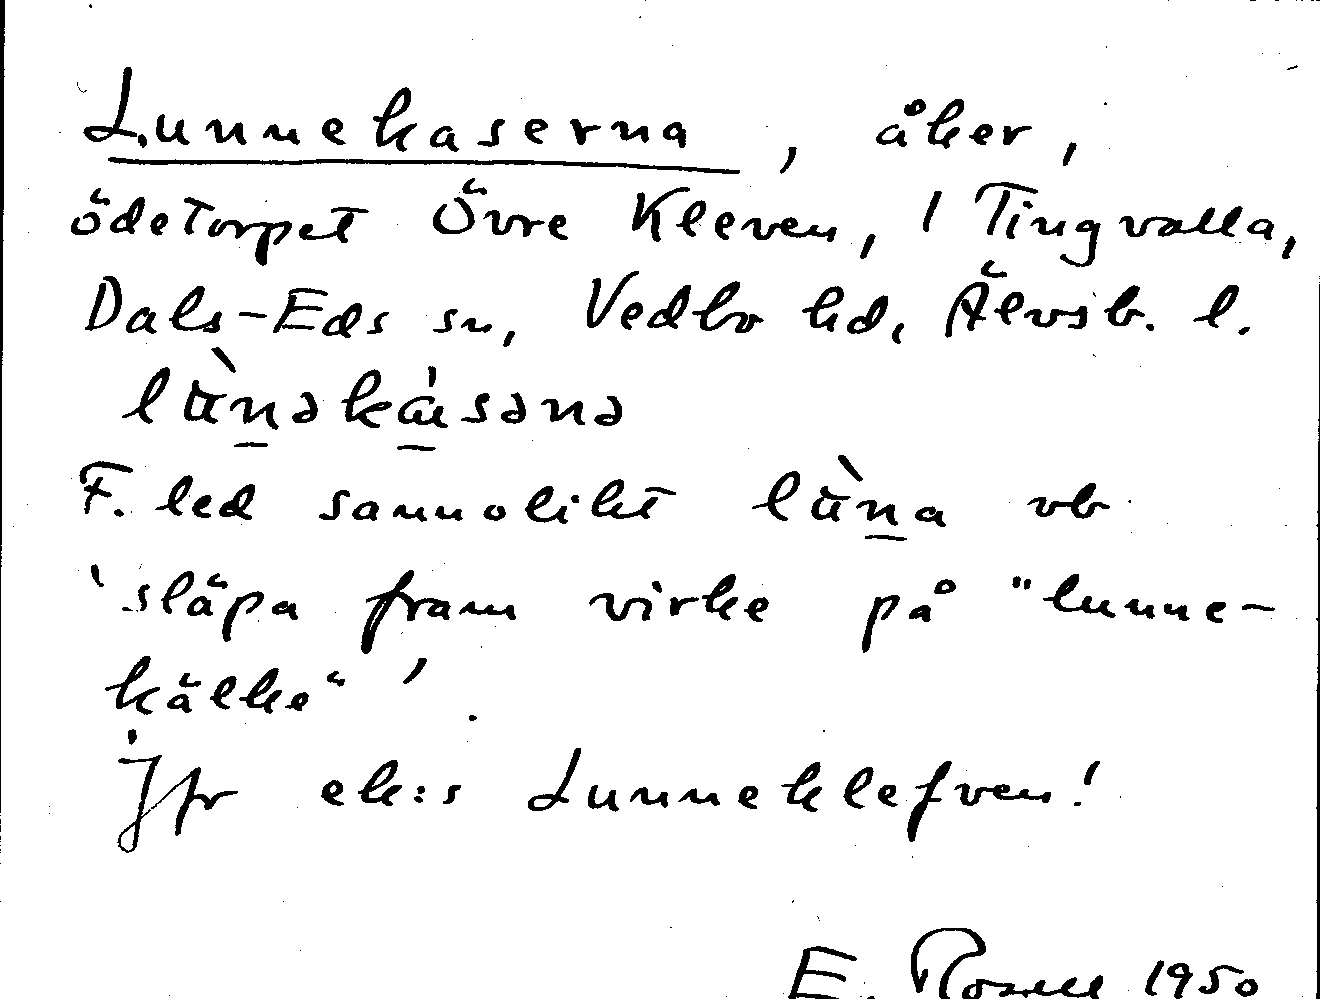 Lunnekaserna, åker,
ödetorpet Övre Kleven, 1 Tingvalla,
Dals-Eds sn, Vedbo hd, Älvsb. l.
lùnəkásənə
F. led sannolikt lùna vb
'släpa fram virke på "lunne-
kälke"'.
Jfr ek:s Lunneklefven!
E. Rosell 1950